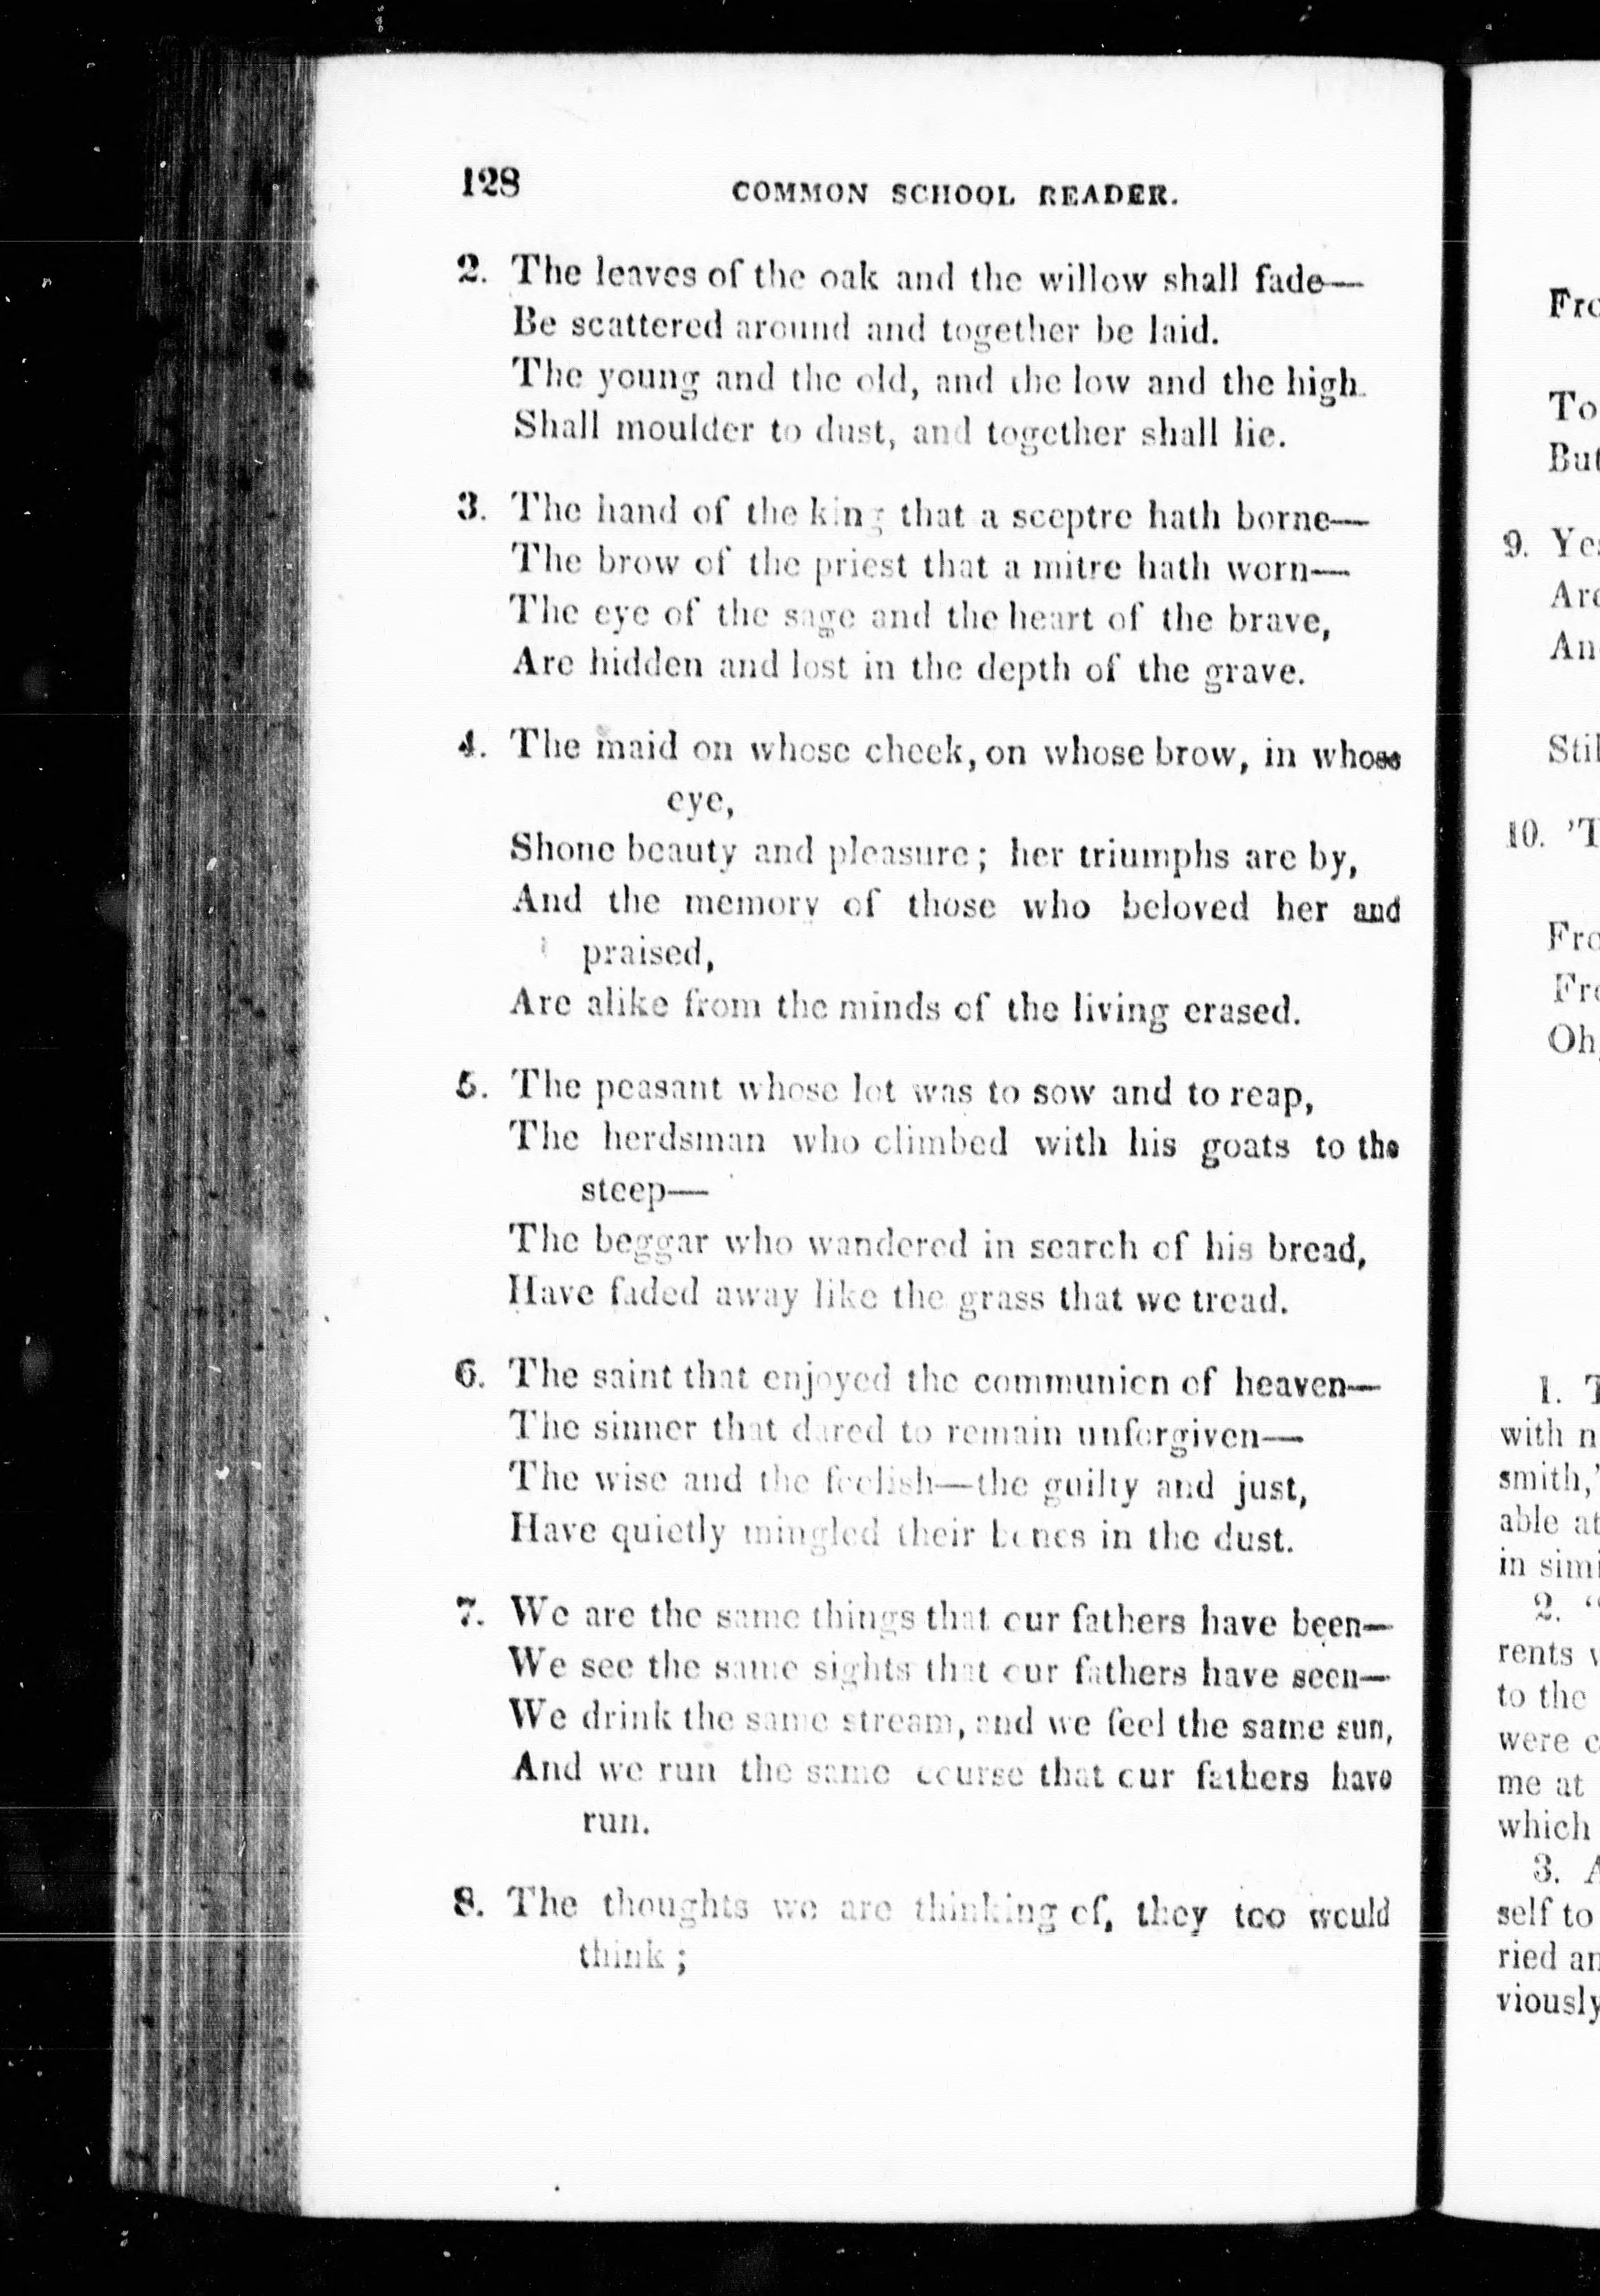 128 COMMON SCHOOL READER.
2. The leaves of the oak and the willow shall fade—
Be scattered around and together be laid.
The young and the old, and the low and the high
Shall moulder to dust, and together shall lie.
3. The hand of the king that a sceptre hath borne—
The brow of the priest that a mitre hath worn—
The eye of the sage and the heart of the brave,
Are hidden and lost in the depth of the grave.
4. The maid on whose cheek, on whose brow, in whose
eye,
Shone beauty and pleasure; her triumphs are by,
And the memory of those who beloved her and
praised,
Are alike from the minds of the living erased.
5. The peasant whose lot was to sow and to reap,
The herdsman who climbed with his goats to the
steep—
The beggar who wandered in search of his bread,
Have faded away like the grass that we tread.
6. The saint that enjoyed the communion of heaven—
The sinner that dared to remain unforgiven—
The wise and the foolish—the guilty and just,
Have quietly mingled their bones in the dust.
7. We are the same things that our fathers have been—
We see the same sights that our fathers have seen—
We drink the same stream, and we feel the same sun,
And we run the same course that our fathers have
run.
8. The thoughts we are thinking of, they too would
think;
To
But
9.
10.
Oh,
1.
with
smith,
able
in
2.
rents
to the
were
me at
which
3.
self to
ried
viously